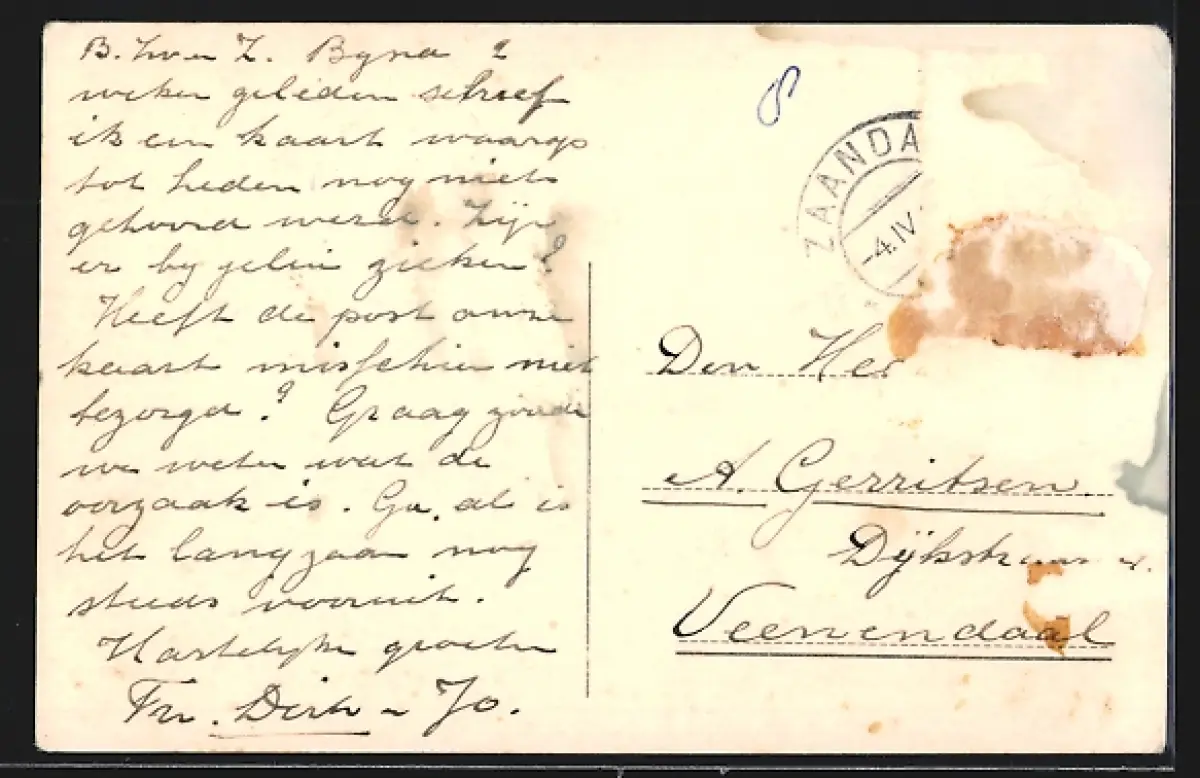 B. Zw en Z. Byna 2
weken geleden schreef
ik een kaart waarop
tot heden nog niets
gehoord werd. Zijn
er by jelui zieken?
Heeft de post onze
kaart misschien niet
bezorgd? Graag zoude
we weten wat de
oorzaak is. Ga, al is
het langzaam nog
steeds vooruit.
Hartelijke groeten
Fr. Dirk - Jo.
ZAANDA
-4.IV
Den He
A. Gerritsen
Dijkstraat
Veenendaal